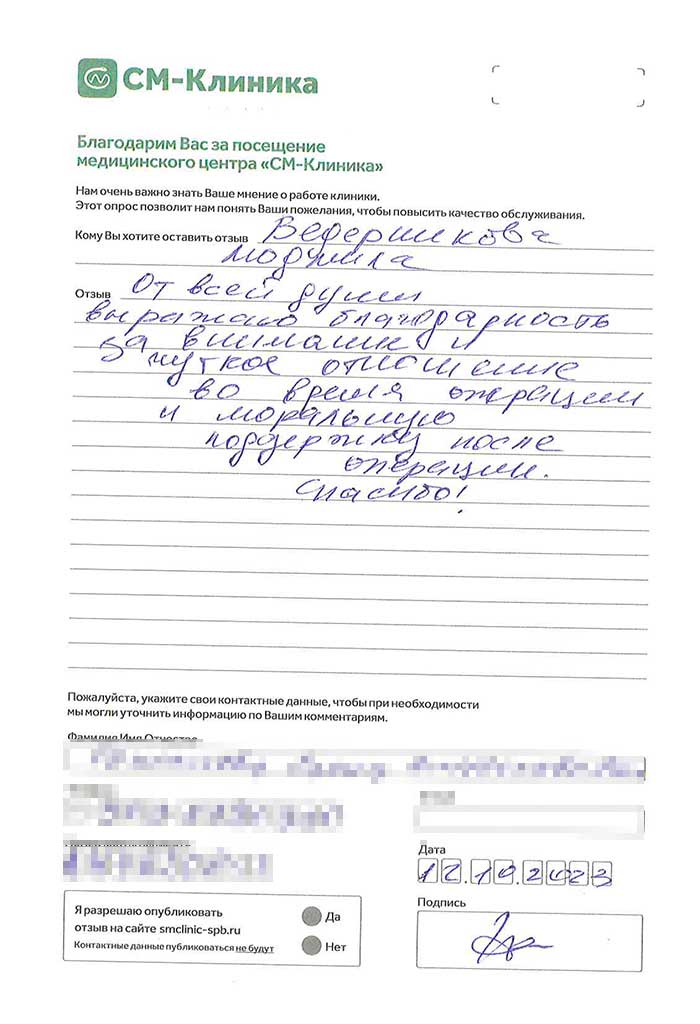 СМ-Клиника
Благодарим Вас за посещение
медицинского центра «СМ-Клиника»
Нам очень важно знать Ваше мнение о работе клиники.
Этот опрос позволит нам понять Ваши пожелания, чтобы повысить качество обслуживания.
Кому Вы хотите оставить отзыв Ведерникова
Людмила
Отзыв От всей души
выражаю благодарность
за внимание и
чуткое отношение
во время операции
и моральную
поддержку после
операции.
Спасибо!
Пожалуйста, укажите свои контактные данные, чтобы при необходимости
мы могли уточнить информацию по Вашим комментариям.
Фамилия Имя Отчество
Дата
12.10.2023
Я разрешаю опубликовать
отзыв на сайте smclinic-spb.ru
Контактные данные публиковаться не будут
Да
Нет
Подпись